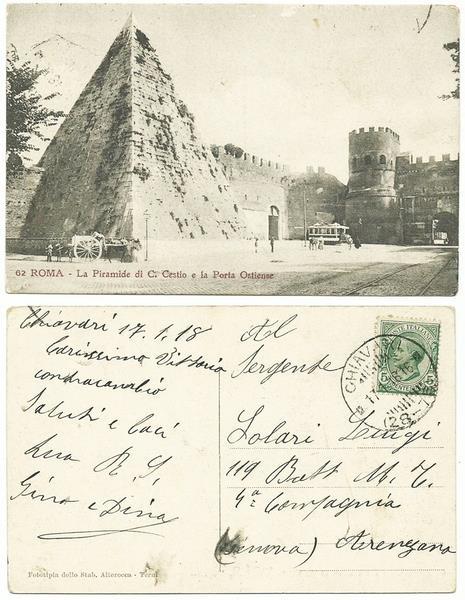 62 ROMA - La Piramide di C. Cestio e la Porta Ostiense
Chiavari 17.1.18
Carissimo Vittorio
contracambio
Saluti e Baci
Gino e Dina
Al
Sergente
Solari Luigi
119 Batt M. T.
4ª Compagnia
(Genova) Arenzano
POSTE ITALIANE
5 5
CHIAVARI
17
(28)
Fototipia dello Stab. Alterocca - Terni